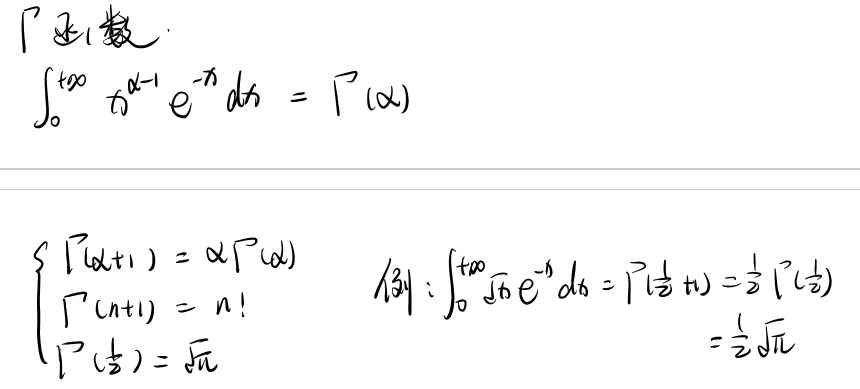 Γ函数.
∫₀^{+∞} x^{α-1} e^{-x} dx = Γ(α)
{ Γ(α+1) = αΓ(α)
Γ(n+1) = n!
Γ(1/2) = √π
例: ∫₀^{+∞} √x e^{-x} dx = Γ(1/2 +1) = 1/2 Γ(1/2)
= 1/2 √π